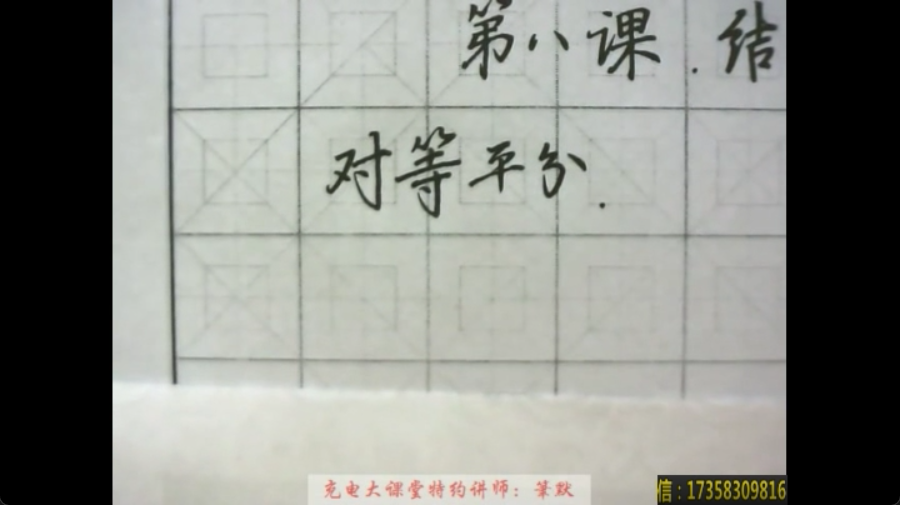 第八课.结
对等平分.
充电大课堂特约讲师：笔默
信：17358309816